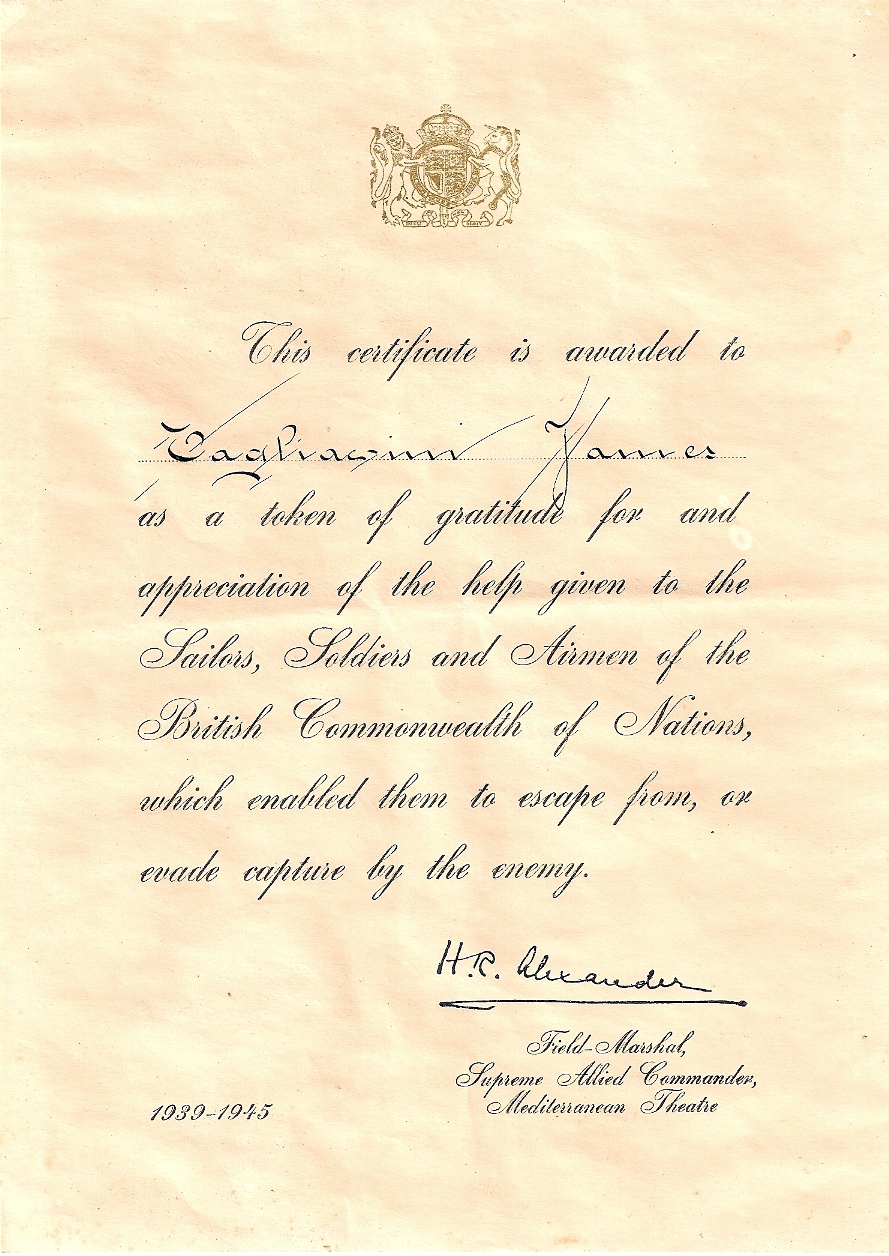 This certificate is awarded to
as a token of gratitude for and
appreciation of the help given to the
Sailors, Soldiers and Airmen of the
British Commonwealth of Nations,
which enabled them to escape from, or
evade capture by the enemy.
H.R. Alexander
Field-Marshal,
Supreme Allied Commander,
Mediterranean Theatre
1939-1945